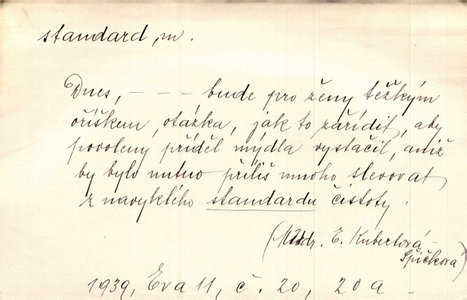 standard, m.
Dnes, - - - bude pro ženy těžkým
oříškem, otázka, jak to zařídit, aby
povolený příděl mýdla vystačil, aniž
by bylo nutno příliš mnoho slevovat
z navyklého standardu čistoty.
E. Kubertová
Špičková)
1939, Eva 11, č. 20, 20 a